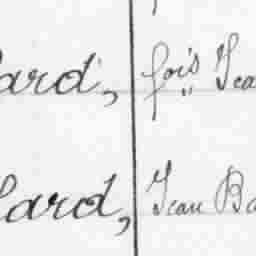 ard, fois Jea
lard, Jean Ba